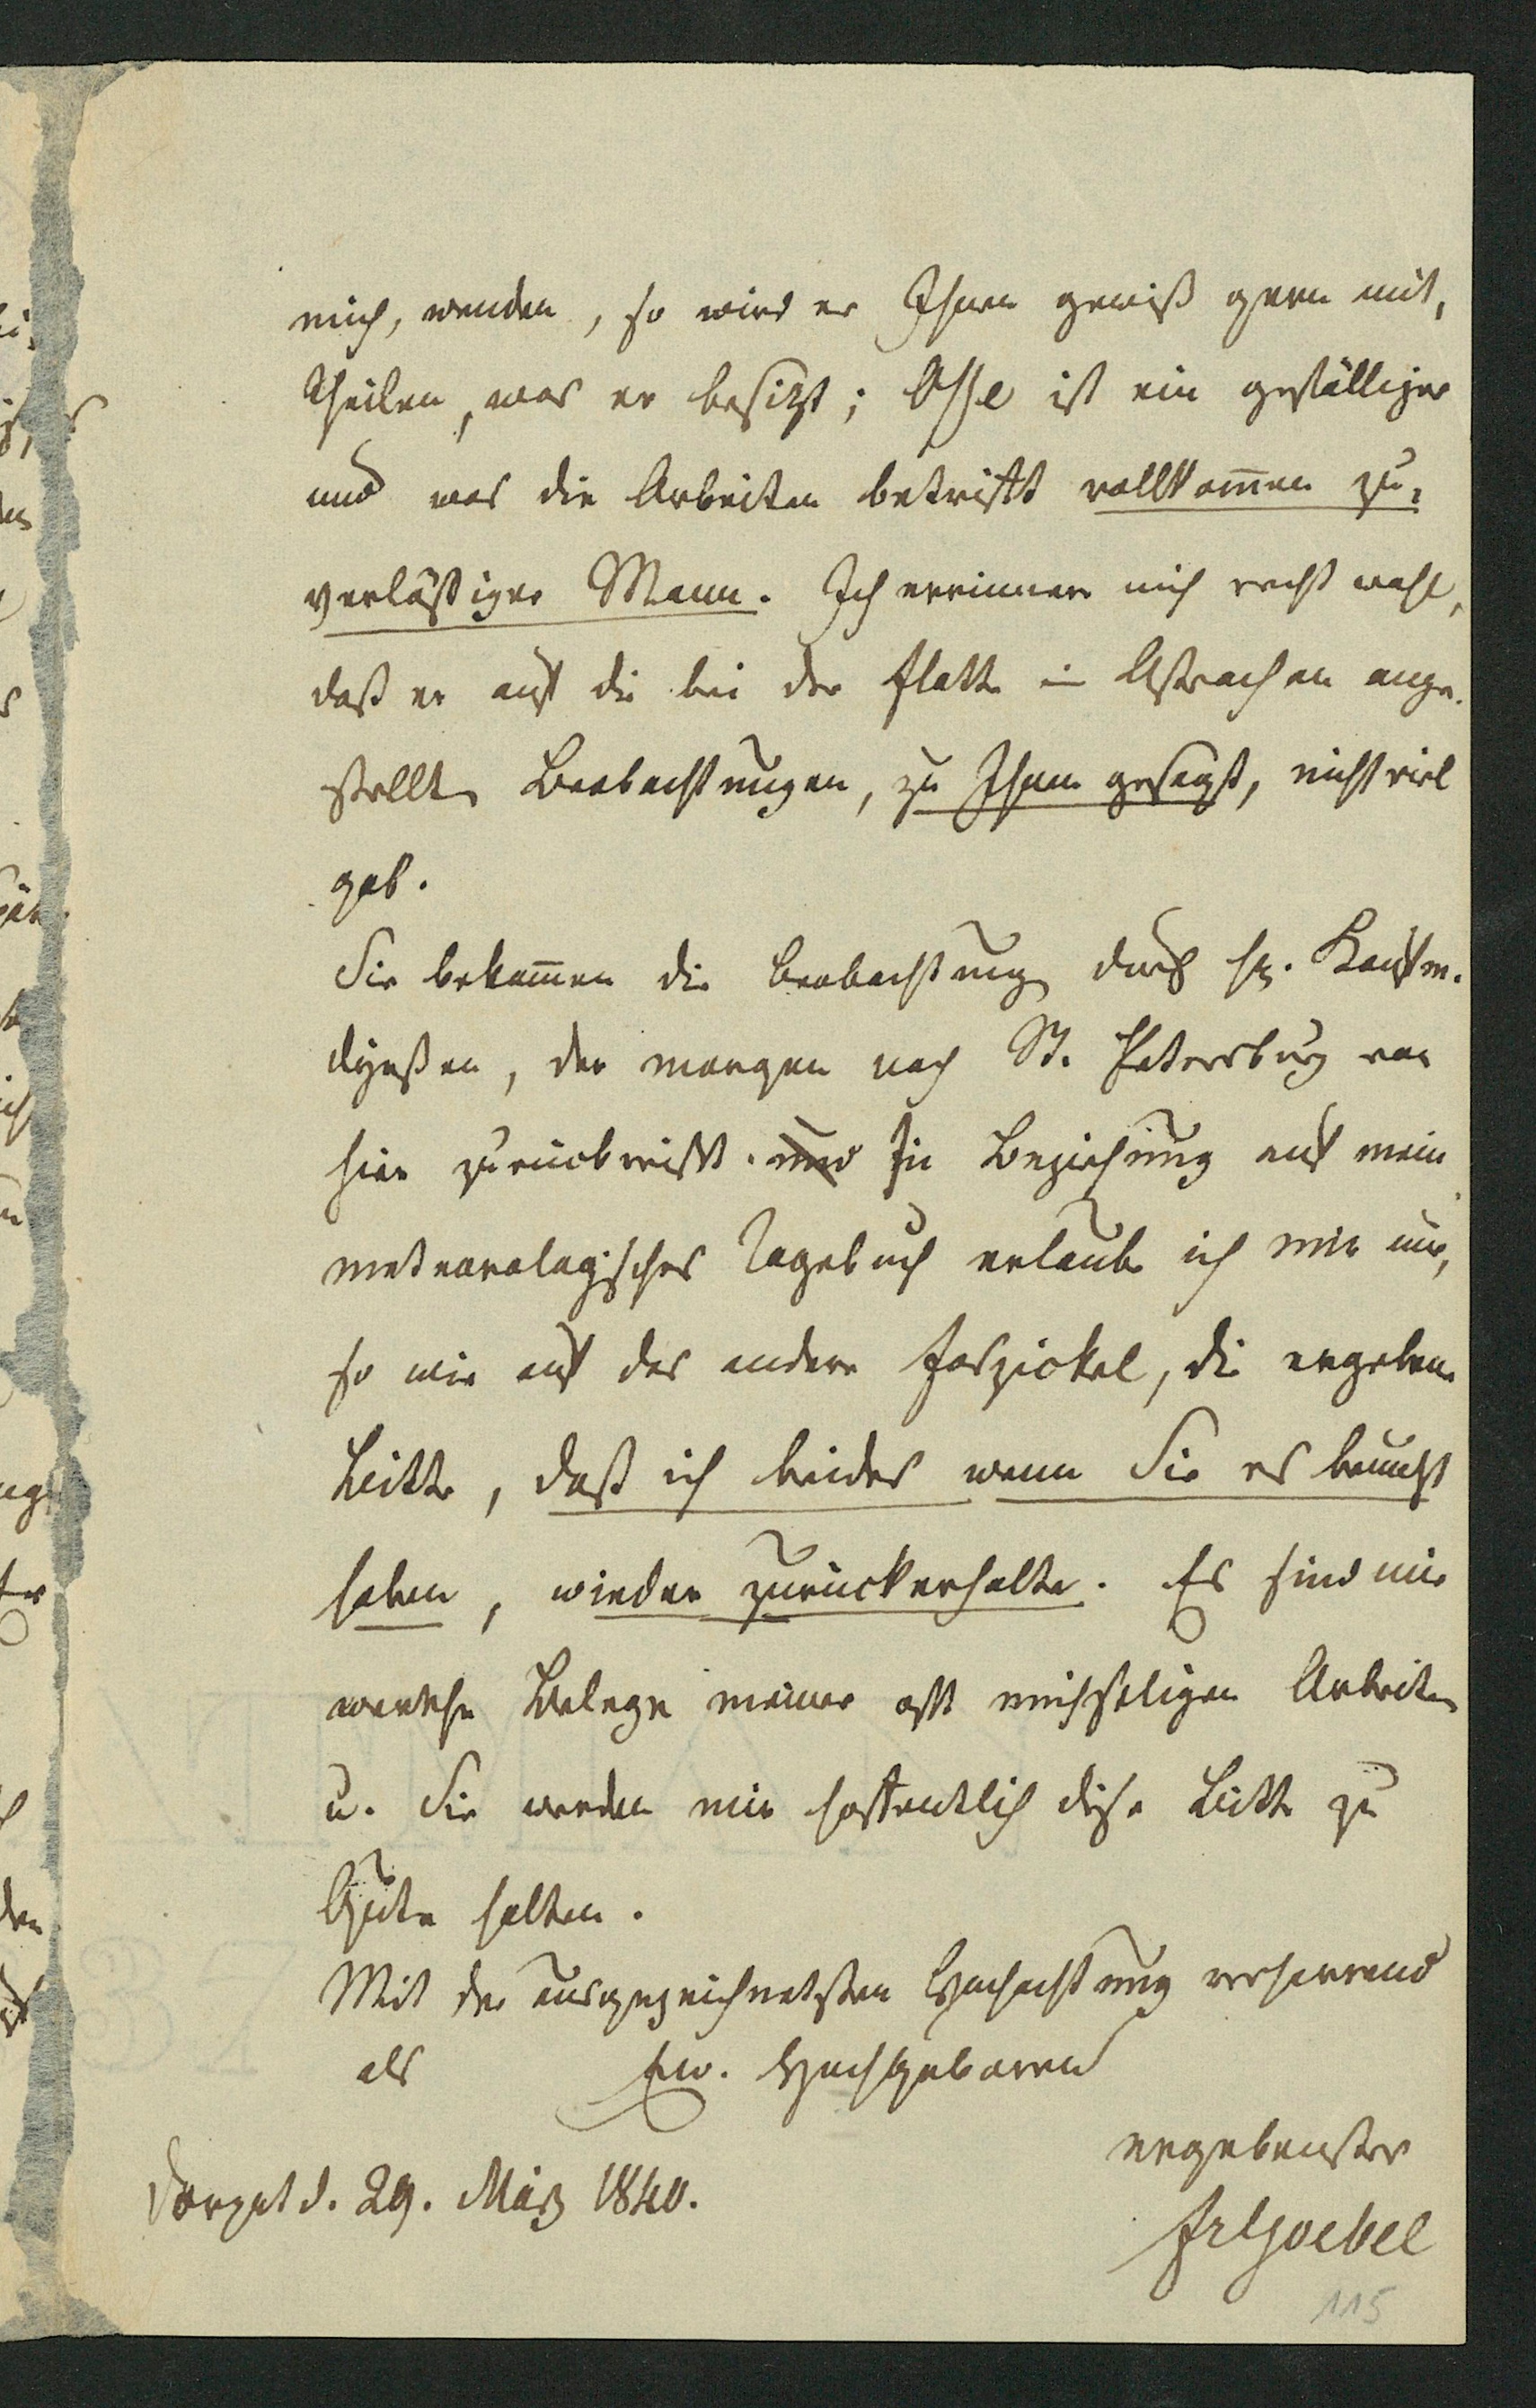 mich, wenden, so wird er Ihnen gewiß gern mit,
theilen, was er besitzt; Osse ist ein gefälliger
und was die Arbeiten betrifft vollkom̅en zu,
verläßiger Mann. Ich errinnere mich recht wohl,
daß er auf die bei der Flotte in Astrachan ange,
stellten Beobachtungen, zu Ihnen gesagt, nicht viel
gab.
Sie bekom̅en die Beobachtungen durch Hr. Kaufm.
, der morgen nach St. Petersburg von
hier zurückreist. und In Beziehung auf mein
meteorologisches Tagebuch erlaube ich mir nur,
so wie auf das andere Faszickel, die ergebene
Bitte, daß ich beides wenn Sie es benutzt
haben, wieder zurückerhalte. Es sind mir
werthe Belege meiner oft mühseligen Arbeiten
u. Sie werden mir hoffentlich diese Bitte zu
Gute halten.
Mit der ausgezeichnetsten Hochachtung verharrend
als Ew. Hochgeboren
ergebenster
Dorpat d. 29. März 1840.
Fr Goebel
115